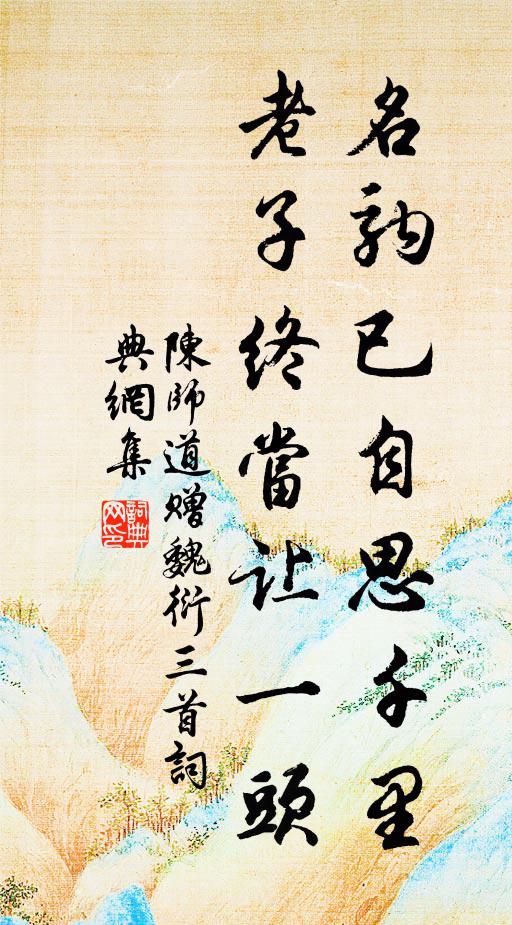 名駒已自思千里
老子終當让一頭
陳師道赠魏衍三首詞
典網集
詞典
网印